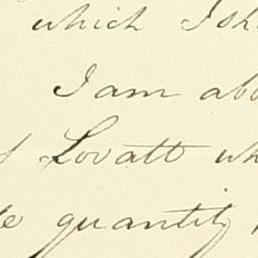 which I sh
I am abo
Lovatt wh
quantity